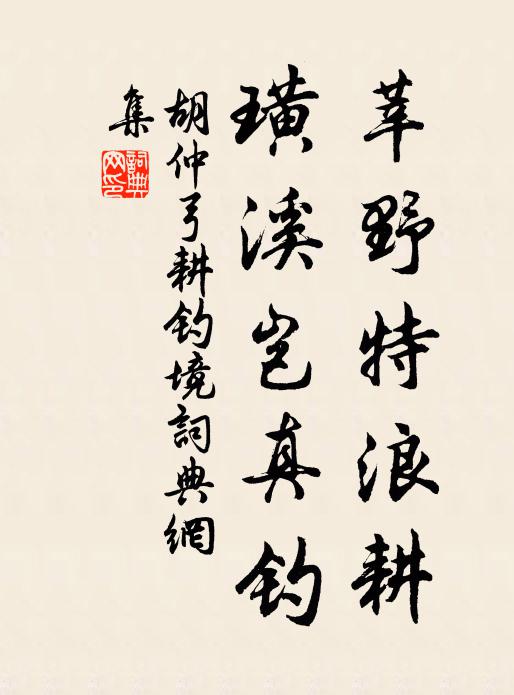 莘野特浪耕
璜溪岂真钓
胡仲弓耕钓境詞典網
集
詞典
网印